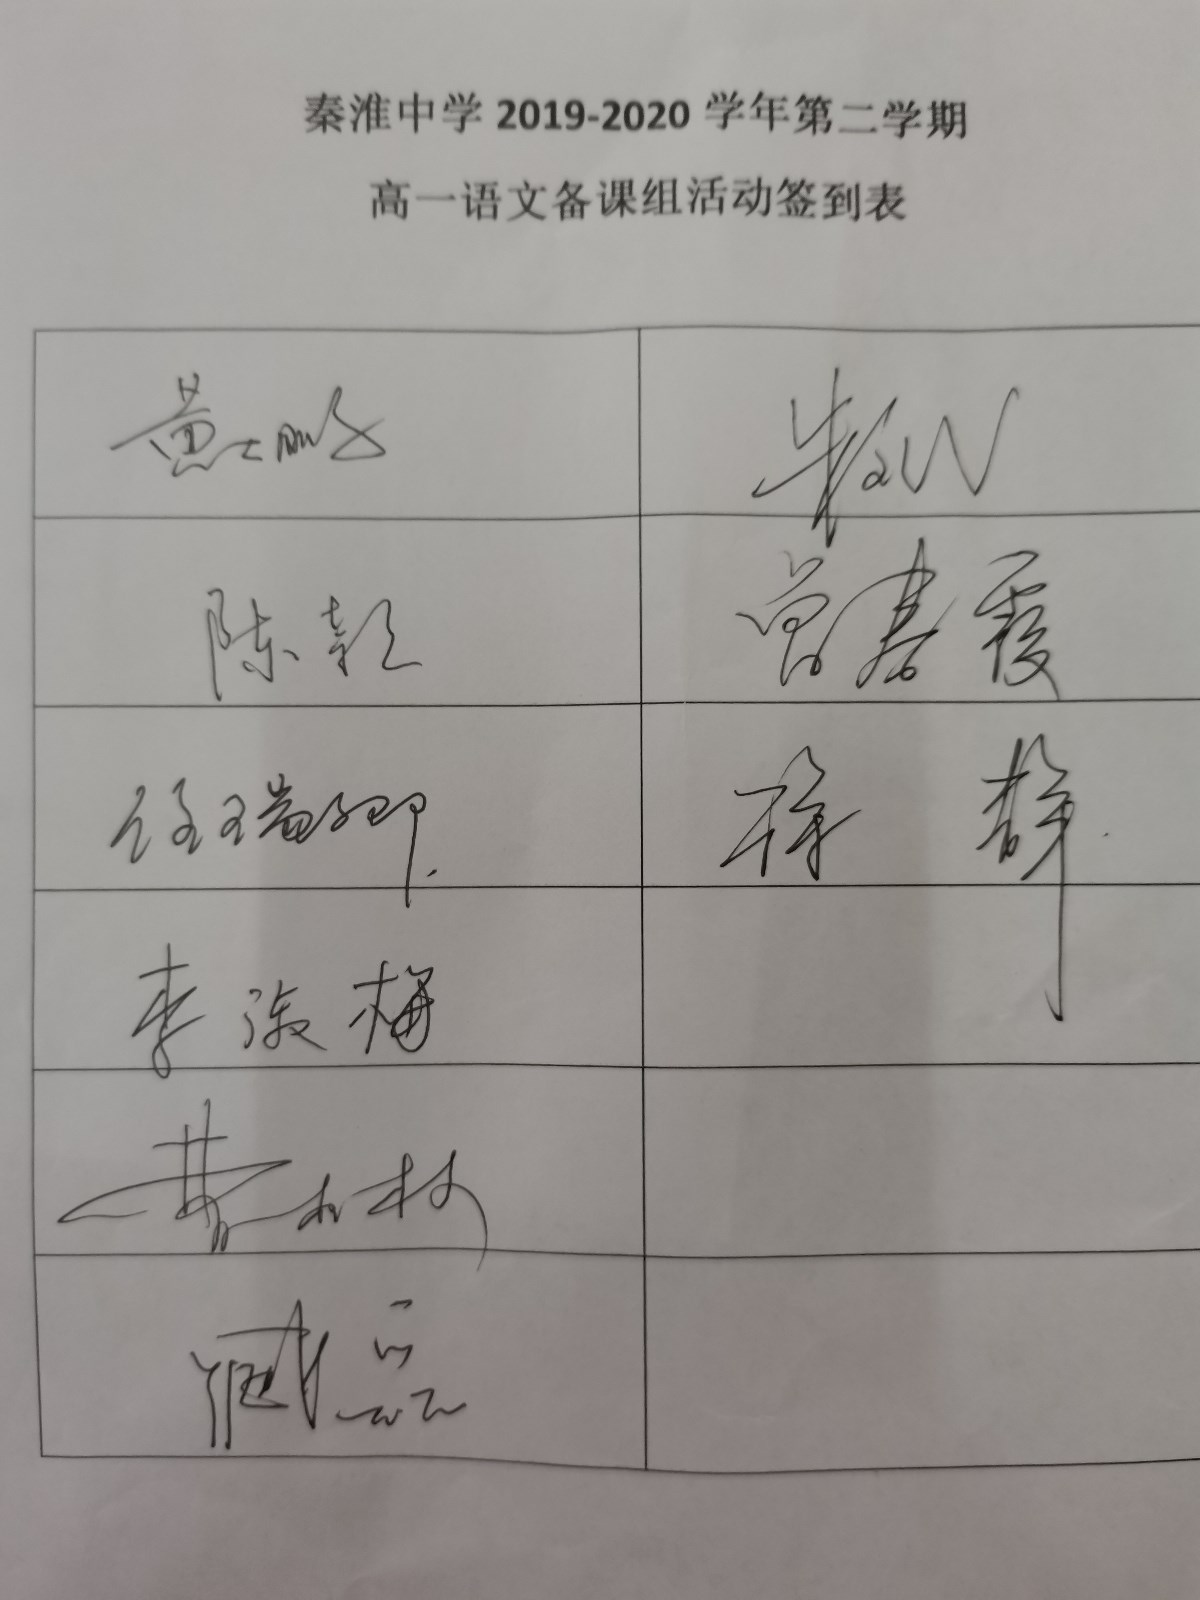 秦淮中学2019-2020学年第二学期
高一语文备课组活动签到表
黄士鹏
陈颖
曾春霞
徐瑞卿
徐静
李淑梅
臧磊